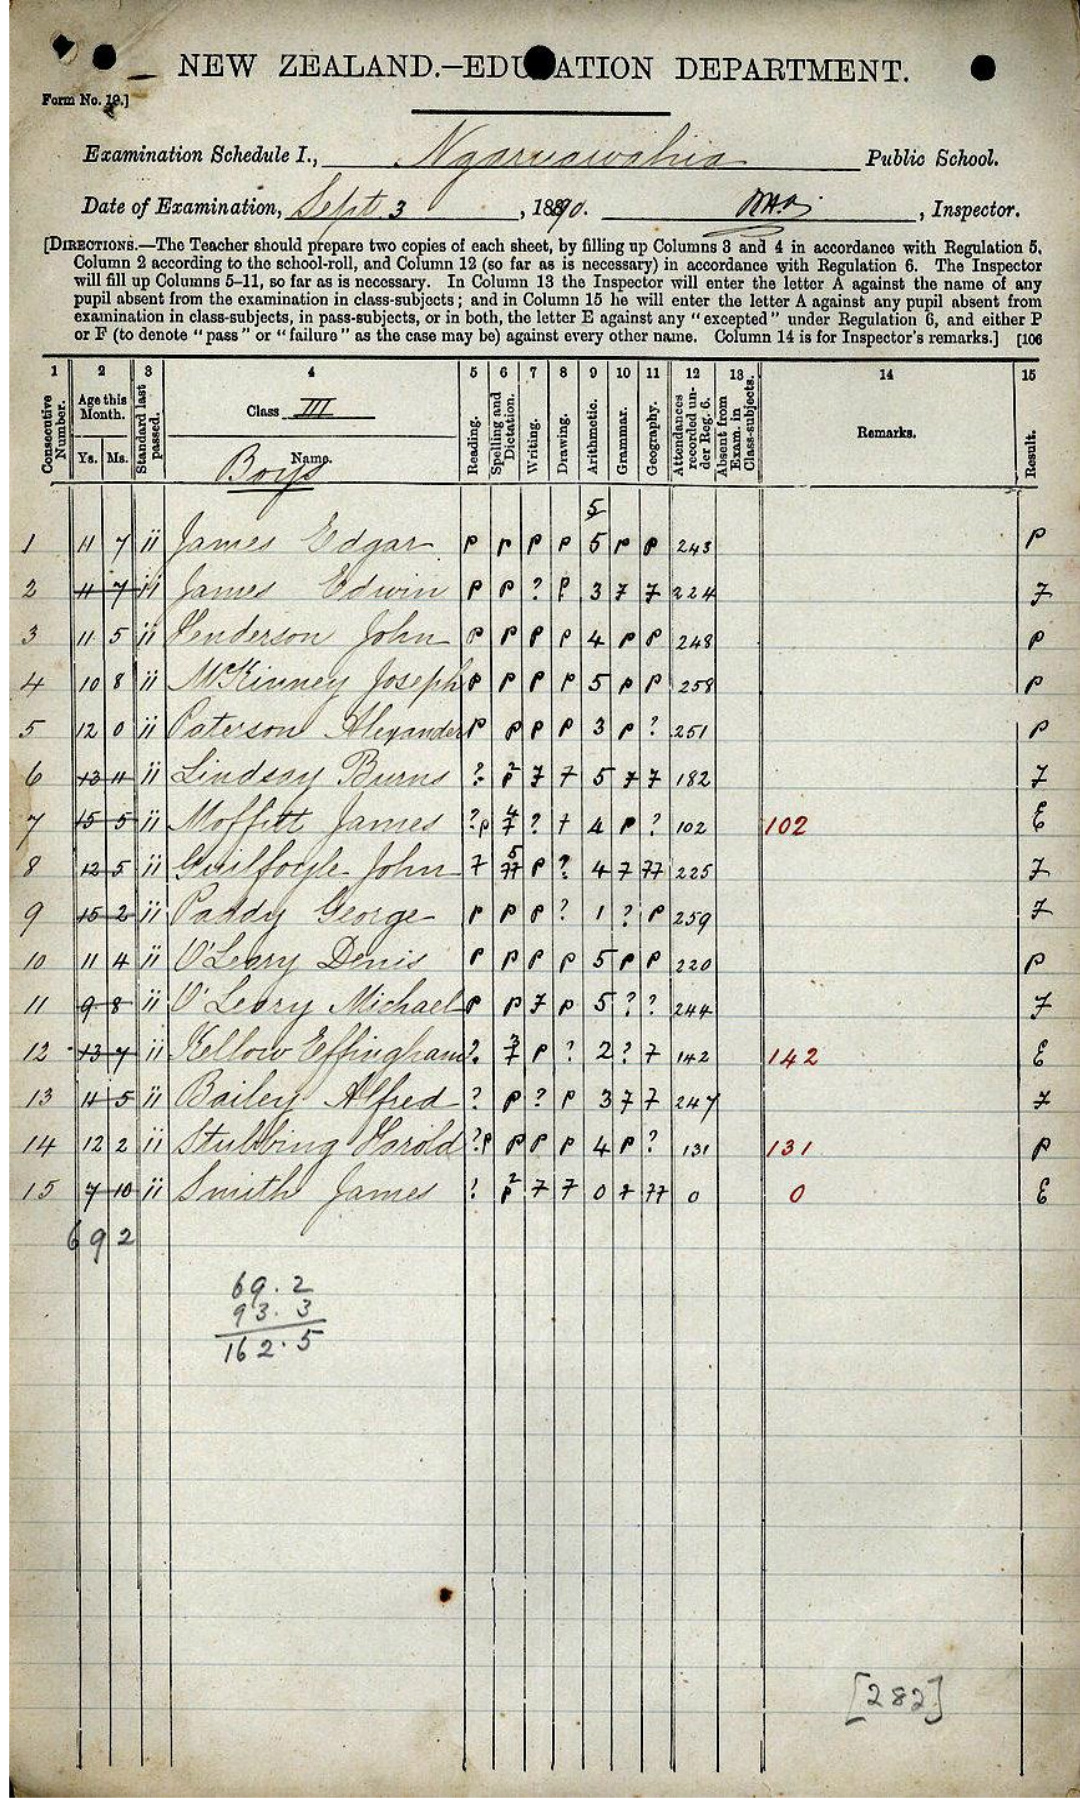 NEW ZEALAND.—EDUCATION DEPARTMENT.
Form No. 19.]
Examination Schedule I., Ngaruawahia Public School.
Date of Examination, Sept 3, 1890. , Inspector.
[DIRECTIONS.—The Teacher should prepare two copies of each sheet, by filling up Columns 3 and 4 in accordance with Regulation 5,
Column 2 according to the school-roll, and Column 12 (so far as is necessary) in accordance with Regulation 6. The Inspector
will fill up Columns 5–11, so far as is necessary. In Column 13 the Inspector will enter the letter A against the name of any
pupil absent from the examination in class-subjects; and in Column 15 he will enter the letter A against any pupil absent from
examination in class-subjects, in pass-subjects, or in both, the letter E against any "excepted" under Regulation 6, and either P
or F (to denote "pass" or "failure" as the case may be) against every other name. Column 14 is for Inspector's remarks.] [106
1 2 3 4 5 6 7 8 9 10 11 12 13 14 15
Consecutive Number. Age this Month. Ys. Ms. Standard last passed. Class III Name. Reading. Spelling and Dictation. Writing. Drawing. Arithmetic. Grammar. Geography. Attendances recorded under Reg. 6. Absent from Exam. in Class-subjects. Remarks. Result.
Boys
5
1 11 7 ii James Edgar P P P P 5 P P 243 P
2 11 7 ii James Edwin P P ? P 3 F F 224 F
3 11 5 ii Henderson John P P P P 4 P P 248 P
4 10 8 ii McKinney Joseph P P P P 5 P P 258 P
5 12 0 ii Paterson Alexander P P P P 3 P ? 251 P
6 13 11 ii Lindsay Burns ? 2 P F F 5 F F 182 F
7 15 5 ii Moffitt James ? P 4 F ? F 4 P ? 102 102 E
8 12 5 ii Guilfoyle John F 5 FF P ? 4 F FF 225 F
9 15 2 ii Paddy George P P P ? 1 ? P 259 F
10 11 4 ii O'Leary Denis P P P P 5 P P 220 P
11 9 8 ii O'Leary Michael P P F P 5 ? ? 244 F
12 13 7 ii Kellow Effingham ? 3 F P ? 2 ? F 142 142 E
13 11 5 ii Bailey Alfred ? P ? P 3 F F 247 F
14 12 2 ii Stubbing Harold ? P P P P 4 P ? 131 131 P
15 7 10 ii Smith James ? 2 P F F 0 F FF 0 0 E
69 2
69.2
93.3
162.5
[282]